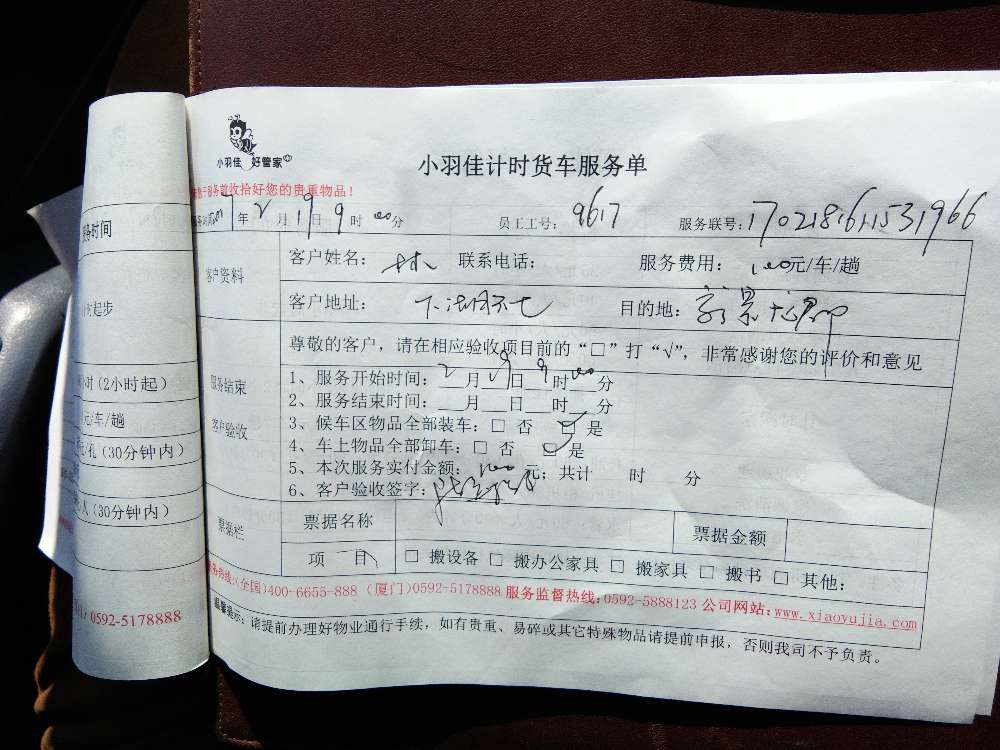 小羽佳 好管家
小羽佳计时货车服务单
服务前收拾好您的贵重物品！
7年2月19日9时00分 员工工号：9617 服务联号：1702181611531966
客户资料
客户姓名：林 联系电话： 服务费用：100元/车/趟
客户地址： 目的地：
尊敬的客户，请在相应验收项目前的“□”打“√”，非常感谢您的评价和意见
服务结束
客户验收
1、服务开始时间：2月19日9时00分
2、服务结束时间：__月__日__时__分
3、候车区物品全部装车：□ 否 □ 是
4、车上物品全部卸车：□ 否 □ 是
5、本次服务实付金额：100元；共计 时 分
6、客户验收签字：
票据栏
票据名称 票据金额
项 目 □ 搬设备 □ 搬办公家具 □ 搬家具 □ 搬书 □ 其他：
服务热线：(全国)400-6655-888 (厦门)0592-5178888 服务监督热线：0592-5888123 公司网站：www.xiaoyujia.com
温馨提示：请提前办理好物业通行手续，如有贵重、易碎或其它特殊物品请提前申报，否则我司不予负责。
服务时间
起步
小时(2小时起)
元/车/趟
(30分钟内)
人(30分钟内)
0592-5178888